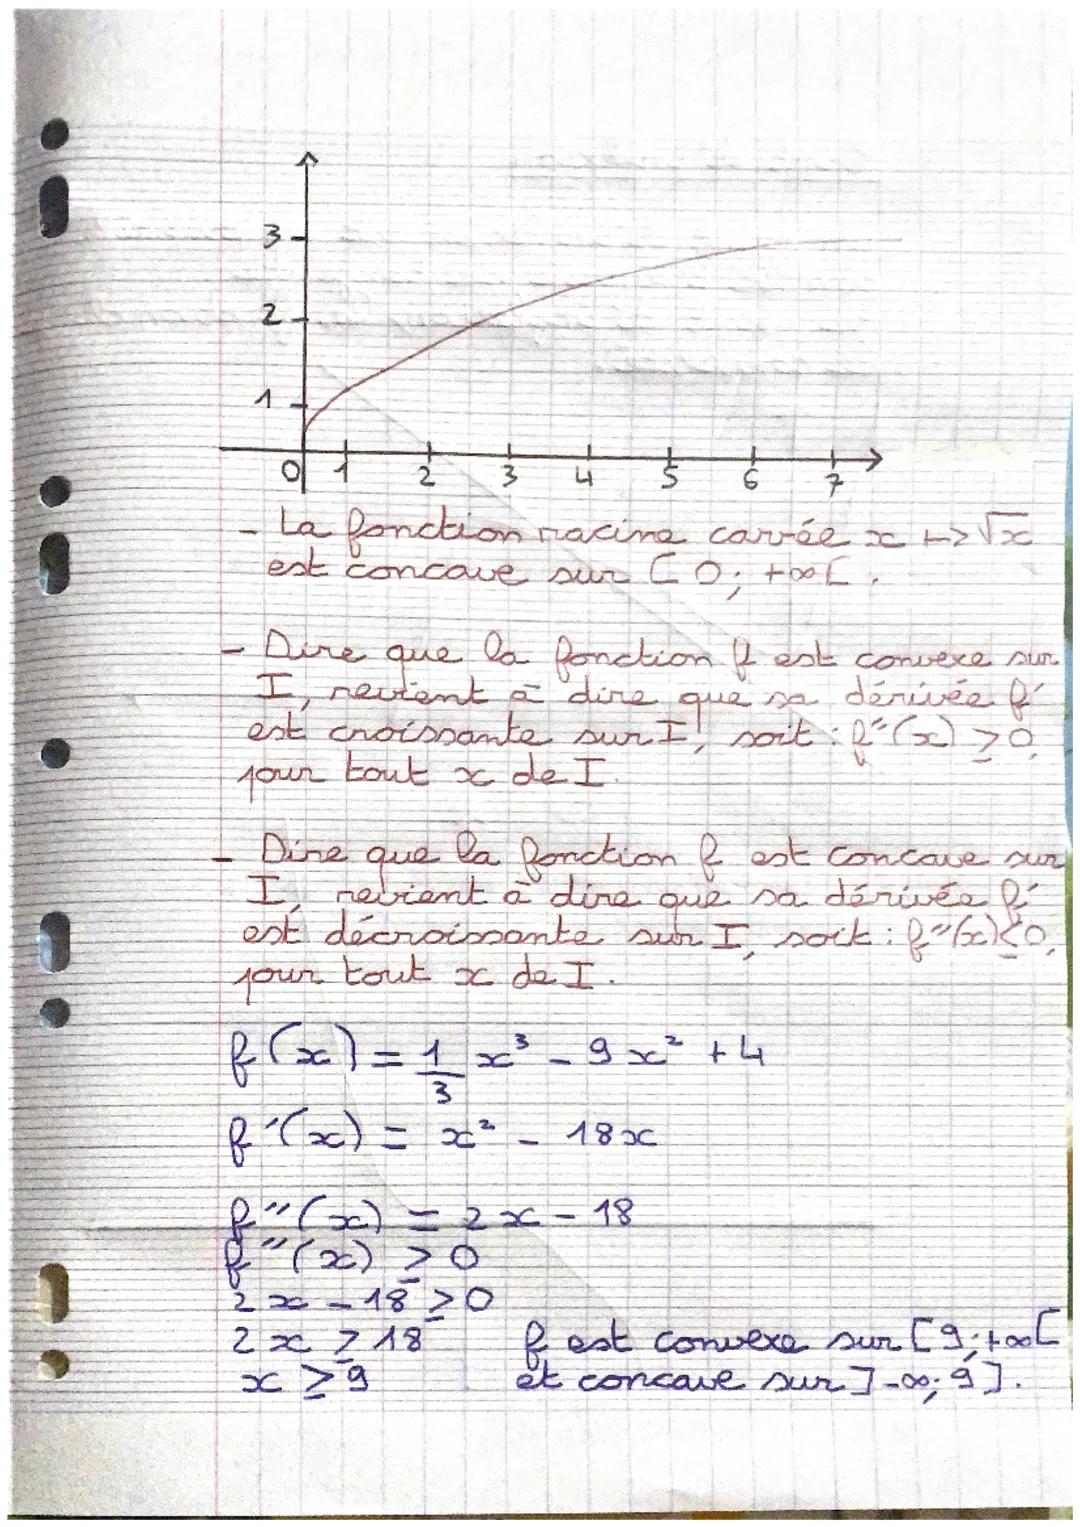 3
2
1
0 1 2 3 4 5 6 7
- La fonction racine carrée x ↦ √x
est concave sur [0; +∞[.
- Dire que la fonction f est convexe sur
I, revient à dire que sa dérivée f'
est croissante sur I, soit : f''(x) ≥ 0,
pour tout x de I.
- Dire que la fonction f est concave sur
I, revient à dire que sa dérivée f'
est décroissante sur I, soit : f''(x) ≤ 0,
pour tout x de I.
f(x) = 1/3 x³ - 9x² + 4
f'(x) = x² - 18x
f''(x) = 2x - 18
f''(x) ≥ 0
2x - 18 ≥ 0
2x ≥ 18 f est convexe sur [9; +∞[
x ≥ 9 et concave sur ]-∞; 9].